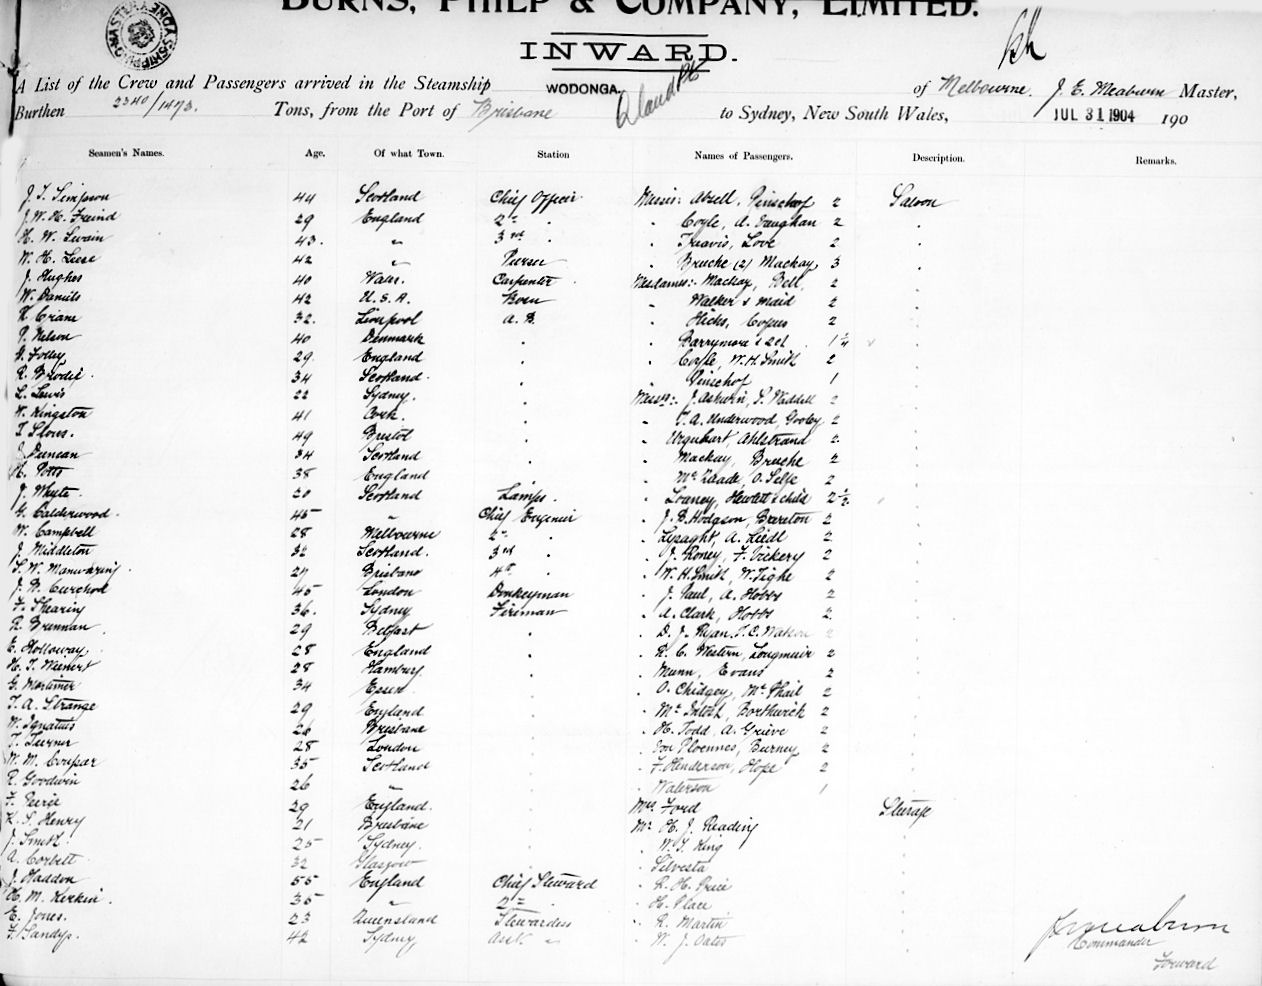 BURNS, PHILP & COMPANY, LIMITED.
INWARD.
A List of the Crew and Passengers arrived in the Steamship WODONGA of Melbourne. J. E. Meaburn Master,
Burthen 2340/1473. Tons, from the Port of Brisbane Qland Pt to Sydney, New South Wales, JUL 31 1904 190
Seamen's Names. Age. Of what Town. Station Names of Passengers. Description. Remarks.
J. T. Simpson 44 Scotland Chief Officer Messrs: Abell, Pinschof 2 Saloon
J. W. H. Freind 29 England 2nd Coyle, A. Vaughan 2
H. W. Swain 43. " 3rd Travis, Love 2
W. H. Liese 42 " Purser Bruche (2) Mackay 3
J. Hughes 40 Wales. Carpenter Mesdames: Mackay, Bell, 2
W. Daniels 42 U.S.A. Bosn Walker & maid 2
Crane 32. Liverpool A.B. Hicks, Copus 2
P. Nelson 40 Denmark Barrymore & 2ch
G. Folley 29 England Coyle, W. H. Smith 2
R. Brodie 34 Scotland. Pinschof 1
L. Lewis 22 Sydney. Messrs: J. Ashwin, P. Waddell 2
W. Kingston 41 Cork. T. A. Underwood, Gooley 2
T. 49 Bristol Urquhart, Ahlstrand 2
J. Duncan 34 Scotland Mackay, Bruche 2
H. Potts 38 England O. Selfe 2
J. Whyte 20 Scotland Lamps. Looney, Hewlett & child 2½
G. Calderwood. 45 " Chief Engineer J. B. Hodgson, Brereton 2
W. Campbell 28 Melbourne 2nd Lysaght, A. Liedl 2
J. Middleton 32 Scotland. 3rd J. Roney, F. Vickery 2
S. W. Manwaring. 27 Brisbane 4th W. H. Smith, W. Tighe 2
J. R. Curchod 45 London Donkeyman J. Paul, A. Hobbs 2
F. Shearing 36. Sydney Fireman A. Clark, Hobbs 2
R. Brennan 29 Belfast D. J. Ryan, T. C. Watson 2
E. Holloway 28 England R. C. Western, Longmuir 2
H. T. Wienert 28 Hamburg Munn, Evans 2
G. Mortimer 34 Essex O. Chidgey, McPhail 2
T. A. Strange 29 England McIntosh, Borthwick 2
W. Ignatius 26 Brisbane H. Todd, A. Grieve 2
T. Turner 28 London Von Ploennes, Burney 2
W. M. Coupar 35 Scotland F. Henderson, Hope 2
R. Goodwin 26 " Waterson 1
F. Peerie 29 England. Mrs. Ford Steerage
K. S. Henry 21 Brisbane Mr. H. J. Reading
J. Smith 25 Sydney. W. T. King
A. Corbett 32 Glasgow Silvesta
J. Haddon 55 England Chief Steward R. H. Price
H. M. Kerkin. 35 " 2nd " H. Place
E. Jones. 23 Queensland Stewardess R. Martin
F. Sandys. 42 Sydney Asst " W. J. Oates
J E Meaburn
Commander
Forward